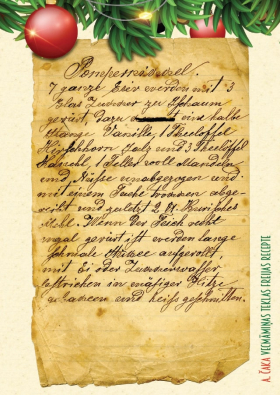 Pompernickel.
7 ganze Eier werden mit 3
Glas Zucker zu Schaum
gerürt, dazu eine halbe
Stange Vanille, 1 Theelöffel
Hirschhorn Salz und 3 Theelöffel
1 Teller voll Mandeln
und Nüsse unabgezogen und
mit einem Tuche trocknen abge-
rieben und zuletzt 2
Mehl. Wenn der Teich recht
egal gerürt ist werden lange
schmale aufgerollt,
mit Ei oder Zuckerwasser
bestrichen in mäßiger Hitze
gebacken und heiss geschnitten.
A. ČAKA VECMĀMIŅAS TEKLAS EREIJAS RECEPTE